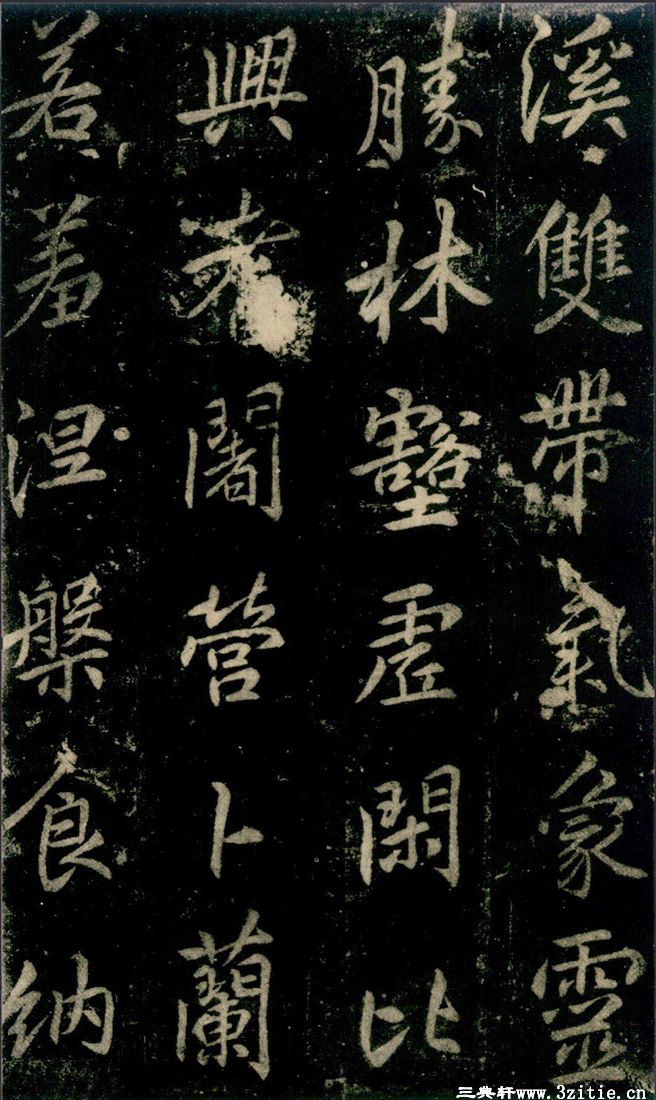 溪雙帶氣象靈
勝林壑虛閑比
興者闍營卜蘭
若羞涅槃食納
三典轩www.3zitie.cn